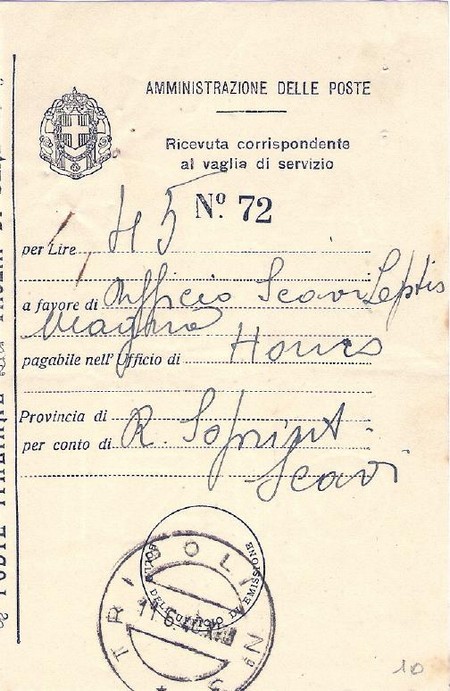 AMMINISTRAZIONE DELLE POSTE
Ricevuta corrispondente
al vaglia di servizio
Nº 72
per Lire 45
a favore di Ufficio Scavi Leptis
Magna
pagabile nell'Ufficio di Homs
Provincia di
per conto di R. Soprint.
Scavi
BOLLO DELL'UFFICIO DI EMISSIONE
TRIPOLI
11.6.40
10